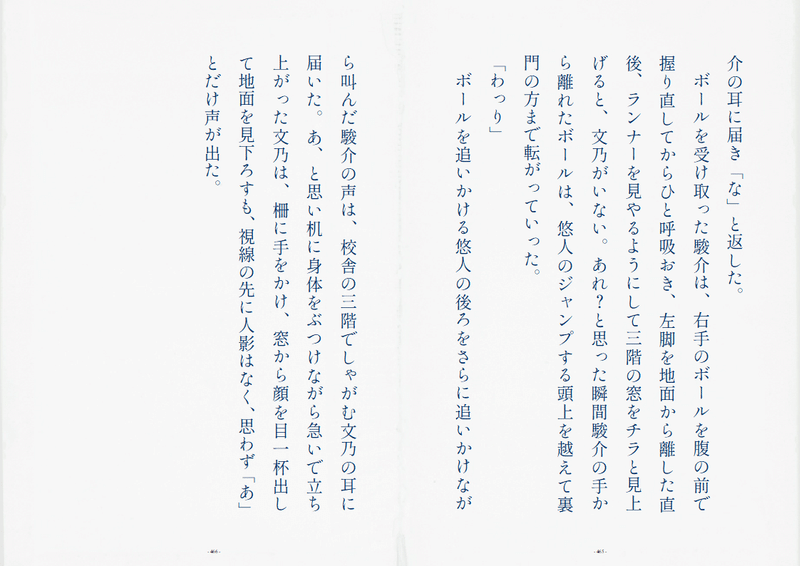 介の耳に届き「な」と返した。
ボールを受け取った駿介は、右手のボールを腹の前で
握り直してからひと呼吸おき、左脚を地面から離した直
後、ランナーを見やるようにして三階の窓をチラと見上
げると、文乃がいない。あれ？と思った瞬間駿介の手か
ら離れたボールは、悠人のジャンプする頭上を越えて裏
門の方まで転がっていった。
「わっり」
ボールを追いかける悠人の後ろをさらに追いかけなが
ら叫んだ駿介の声は、校舎の三階でしゃがむ文乃の耳に
届いた。あ、と思い机に身体をぶつけながら急いで立ち
上がった文乃は、柵に手をかけ、窓から顔を目一杯出し
て地面を見下ろすも、視線の先に人影はなく、思わず「あ」
とだけ声が出た。